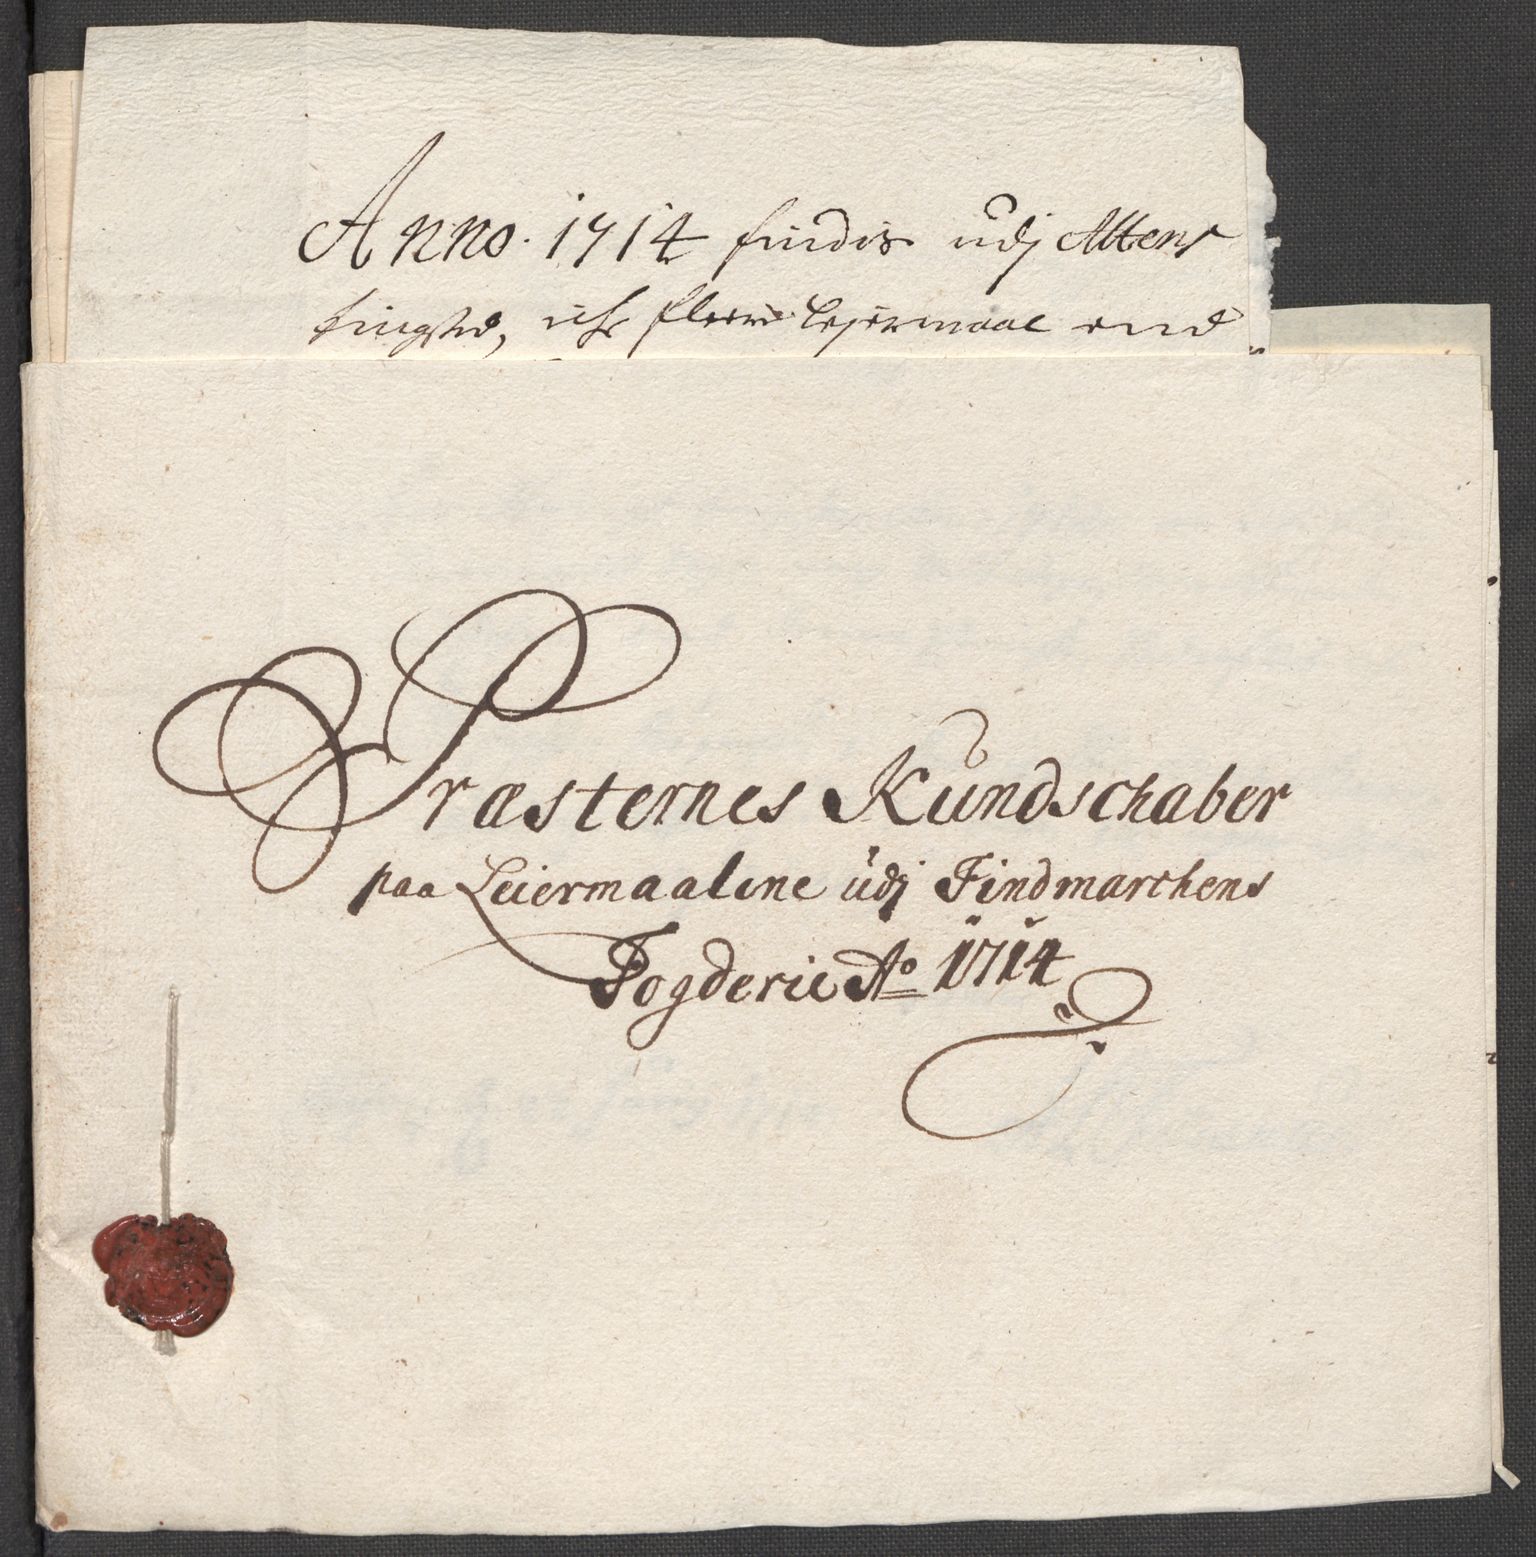 Anno. 1714 findis udj Altens
tingsted, icke fleere Lejermaal end
Præsternes Kundschaber
paa Leiermaalene udj Findmarchens
Fogderie Ao 1714